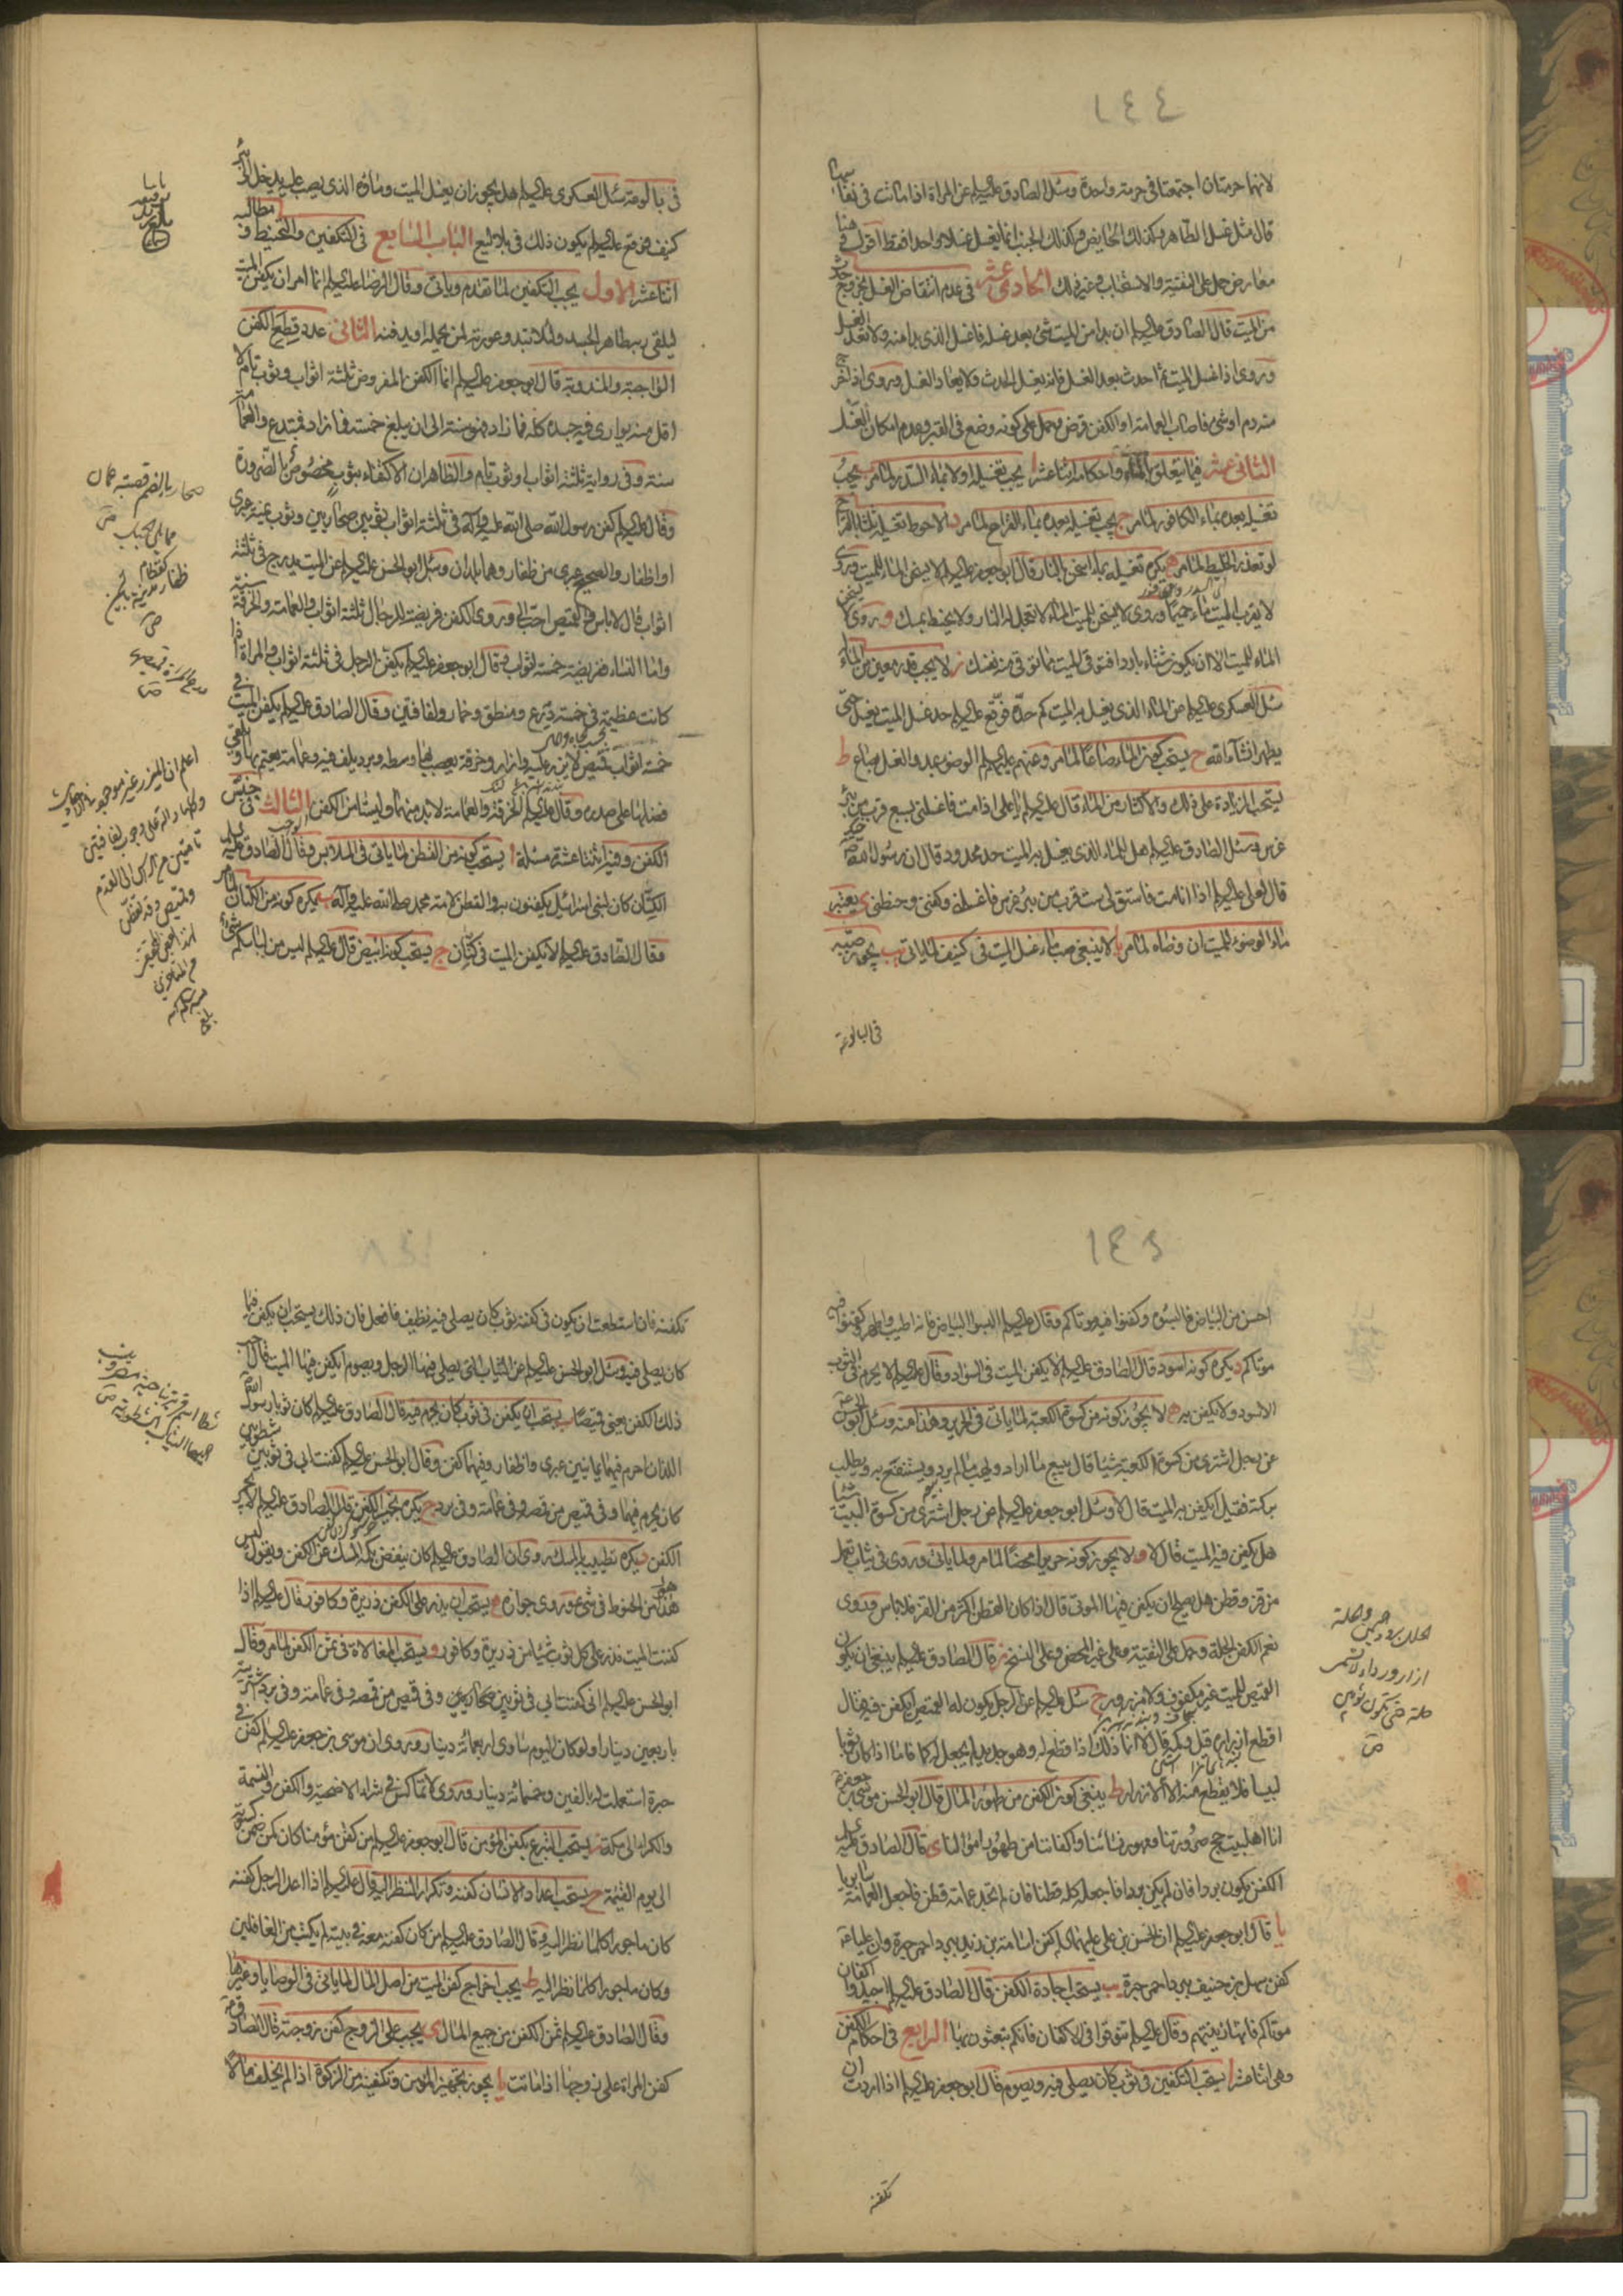 ١٤٤
لانهما حرمتان اجتمعتا في حرمة واحدة وسئل الصادق عليه السلم عن المراة اذا ماتت في نفاسها
قال مثل غسل الطاهر وكذلك الحايض وكذلك الجنب انما يغسل غسلا واحدا فقط اقول
معارض حمل على التقية والاستحباب وغير ذلك الحادي عشر في عدم انتقاض الغسل بخروج حدث
من الميت قال الصادق عليه السلم ان بدا من الميت شئ بعد غسله فاغسل الذي بدا منه ولا تعد الغسل
وروى اذا غسل الميت ثم احدث بعد الغسل فانه يغسل الحدث ولا يعاد الغسل وروى اذا خرج
منه دم او شئ فاصاب العمامة او الكفن قرض وحمل على كونه وضع في القبر وعدم امكان الغسل
الثاني عشر فيما يتعلق بالماء واحكامه اثنا عشر ا يجب تغسيله اولا بماء السدر لما مر ب يجب
تغسيله بعده بماء الكافور لما مر ج يجب تغسيله بعده بماء القراح لما مر د الاحوط تغسيله ثلثا بالقراح
لو تعذر الخليط لما مر ه يكره تغسيله بماء اسخن بالنار قال ابو جعفر عليه السلم لا يسخن الماء للميت وروى
لا يقرب الميت ماء حميما وروى لا يسخن للميت الماء لا تعجل له النار ولا يحنط بمسك و روى لا يسخن
الماء للميت الا ان يكون شتاء باردا فتوقي الميت مما توقي منه نفسك ز لا يجب قدر معين من الماء
سئل العسكري عليه السلم عن الماء الذي يغسل به الميت كم حده فوقع عليه السلم حد غسل الميت يغسل حتى
يطهر انشاء الله ح يستحب كون الماء صاعا لما مر وعنهم عليهم السلم الوضوء بمد والغسل بصاع ط
يستحب الزيادة على ذلك والاكثار من الماء قال عليه السلم يا علي اذا مت فاغسلني بسبع قرب من بئر
غرس وسئل الصادق عليه السلم هل للماء الذي يغسل به الميت حد محدود قال ان رسول الله
قال لعلي عليه السلم اذا انا مت فاستق لي ست قرب من بئر غرس فاغسلني وكفني وحنطني ى يعتبر
ماء الوضوء للميت ان وضاه لما مر يا لا ينبغي صب ماء غسل الميت في كنيف لما ياتي يب يجوز صبه
في البالوعة
في بالوعة سئل العسكري عليه السلم هل يجوز ان يغسل الميت وماؤه الذي يصب عليه يدخل الى بئر
كنيف فوقع عليه السلم يكون ذلك في بلاليع الباب السابع في التكفين والتحنيط و مطالبه
اثنا عشر الاول يجب التكفين لما تقدم وياتي وقال الرضا عليه السلم انما امر ان يكفن الميت
ليلقى ربه طاهر الجسد ولئلا تبدو عورته لمن يحمله او يدفنه الثاني عدد قطع الكفن
الواجبة والمندوبة قال ابو جعفر عليه السلم انما الكفن المفروض ثلثة اثواب وثوب تام لا
اقل منه يوارى فيه جسده كله فما زاد فهو سنة الى ان يبلغ خمسة فما زاد فمبتدع والعمامة
سنة وفي رواية ثلثة اثواب او ثوب تام والظاهر ان الاكتفاء بثوب مخصوص بالضرورة
وقال عليه السلم كفن رسول الله صلى الله عليه واله في ثلثة اثواب ثوبين صحاريين وثوب يمنة عبري
او اظفار والصحيح عبري من ظفار وهما بلدان وسئل ابو الحسن عليه السلم عن الميت يدرج في ثلثة
اثواب قال لا باس والقميص احب الي وروى الكفن فريضته للرجال ثلثة اثواب والعمامة والخرقة سنة
واما النساء ففريضته خمسة اثواب وقال ابو جعفر عليه السلم يكفن الرجل في ثلثة اثواب والمراة اذا
كانت عظيمة في خمسة درع ومنطق وخمار ولفافتين وقال الصادق عليه السلم يكفن الميت في
خمسة اثواب قميص لا يزر عليه وازار وخرقة يعصب بها وسطه وبرد يلف فيه وعمامة يعتم بها ويلقى
فضلها على صدره وقال عليه السلم الخرقة والعمامة لا بد منهما وليستا من الكفن الثالث في جنس
الكفن وفيه اثنتا عشرة مسئلة ا يستحب كونه من القطن لما ياتي في الملابس وقال الصادق عليه السلم
الكتان كان لبني اسرائيل يكفنون به والقطن لامة محمد صلى الله عليه واله ب يكره كونه من الكتان لما مر
وقال الصادق عليه السلم لا يكفن الميت في كتان ج يستحب كونه ابيض قال عليه السلم ليس من لباسكم شئ
صحار بالضم قصبة عمان
مما يلي الجبل ص
ظفار كقطام
مدينة باليمن
ص
اعلم ان الميزر غير موجود في
١٤٥
احسن من البياض فالبسوه وكفنوا فيه موتاكم وقال عليه السلم البسوا البياض فانه اطيب واطهر وكفنوا فيه
موتاكم د يكره كونه اسود قال الصادق عليه السلم لا يكفن الميت في السواد وقال عليه السلم لا يحرم في الثوب
الاسود ولا يكفن به ه لا يجوز كونه من كسوة الكعبة لما ياتي في الحرير وهذا منه وسئل ابو الحسن
عن رجل اشترى من كسوة الكعبة شيئا قال يبيع ما اراد ويهب ما لم يرد ويستنفع به ويطلب
بركته فقيل ايكفن به الميت قال لا وسئل ابو جعفر عليه السلم عن رجل اشترى من كسوة البيت شيئا
هل يكفن فيه الميت قال لا و لا يجوز كونه حريرا محضا لما مر ولما ياتي وروى في ثياب تعمل
من قز وقطن هل يصلح ان يكفن فيها الموتى قال اذا كان القطن اكثر من القز فلا باس وروى
نعم الكفن الحلة وحمل على التقية وعلى غير المحض وعلى النسخ ز قال الصادق عليه السلم ينبغي ان يكون
القميص للميت غير مكفوف ولا مزرور ح سئل عليه السلم عن الرجل يكون له القميص ايكفن فيه فقال
اقطع ازراره قيل وكمه قال لا انما ذلك اذا قطع له وهو جديد لم يجعل له كما فاما اذا كان ثوبا
لبيسا فلا يقطع منه الا الازرار ط ينبغي كون الكفن من طهور المال قال ابو الحسن موسى بن جعفر
انا اهل بيت حج صرورتنا ومهور نسائنا واكفاننا من طهور اموالنا ى قال الصادق عليه السلم
الكفن يكون بردا فان لم يكن بردا فاجعله كله قطنا فان لم تجد عمامة قطن فاجعل العمامة سابريا
يا قال ابو جعفر عليه السلم ان الحسن بن علي عليهما السلم كفن اسامة بن زيد ببرد احمر حبرة وان عليا
كفن سهل بن حنيف ببرد احمر حبرة يب يستحب اجادة الكفن قال الصادق عليه السلم اجيدوا اكفان
موتاكم فانها زينتهم وقال عليه السلم تنوقوا في الاكفان فانكم تبعثون بها الرابع في احكام الكفن
وهي اثنا عشر ا يستحب التكفين في ثوب كان يصلي فيه ويصوم قال ابو جعفر عليه السلم اذا اردت ان
تكفنه
تكفنه فان استطعت ان يكون في كفنه ثوب كان يصلي فيه نظيف فافعل فان ذلك يستحب ان يكفن فيما
كان يصلي فيه وسئل ابو الحسن عليه السلم عن الثياب التي يصلي فيها الرجل ويصوم ايكفن فيها الميت قال احب
ذلك الكفن يعني قميصا ب يستحب ان يكفن في ثوب كان يحرم فيه قال الصادق عليه السلم كان ثوبا رسول الله
اللذان احرم فيهما يمانيين عبري واظفار وفيهما كفن وقال ابو الحسن عليه السلم كفنت ابي في ثوبين شطويين
كان يحرم فيهما وفي قميص من قمصه وفي عمامة وفي برد ج يكره تجمير الكفن قال الصادق عليه السلم لا يجمر
الكفن د يكره تطييبه بالمسك وروى ان الصادق عليه السلم كان ينفض بكمه المسك عن الكفن ويقول ليس
هذا من الحنوط في شئ وروى جوازه ه يستحب ان يذر على الكفن ذريرة وكافور قال عليه السلم اذا
كفنت الميت فذر على كل ثوب شيئا من ذريرة وكافور و يستحب المغالاة في ثمن الكفن لما مر وقال
ابو الحسن عليه السلم اني كفنت ابي في ثوبين شطويين وفي قميص من قمصه وفي عمامة وفي برد اشتريته
باربعين دينارا ولو كان اليوم لساوى اربعمائة دينار وروى ان موسى بن جعفر عليه السلم كفن في
حبرة استعملت له بالفين وخمسمائة دينار وروى لا تماكس في شراء الاضحية والكفن والنسمة
والكراء الى مكة ز يستحب التبرع بكفن المؤمن قال ابو جعفر عليه السلم من كفن مؤمنا كان كمن ضمن كسوته
الى يوم القيمة ح يستحب اعداد الانسان كفنه وتكرار النظر اليه قال عليه السلم اذا اعد الرجل كفنه
كان ماجورا كلما نظر اليه وقال الصادق عليه السلم من كان كفنه معه في بيته لم يكتب من الغافلين
وكان ماجورا كلما نظر اليه ط يجب اخراج كفن الميت من اصل المال لما ياتي في الوصايا وغيرها
وقال الصادق عليه السلم ثمن الكفن من جميع المال ى يجب على الزوج كفن زوجته قال الصادق
كفن المراة على زوجها اذا ماتت يا يجوز تجهيز المؤمن وتكفينه من الزكوة اذا لم يخلف مالا